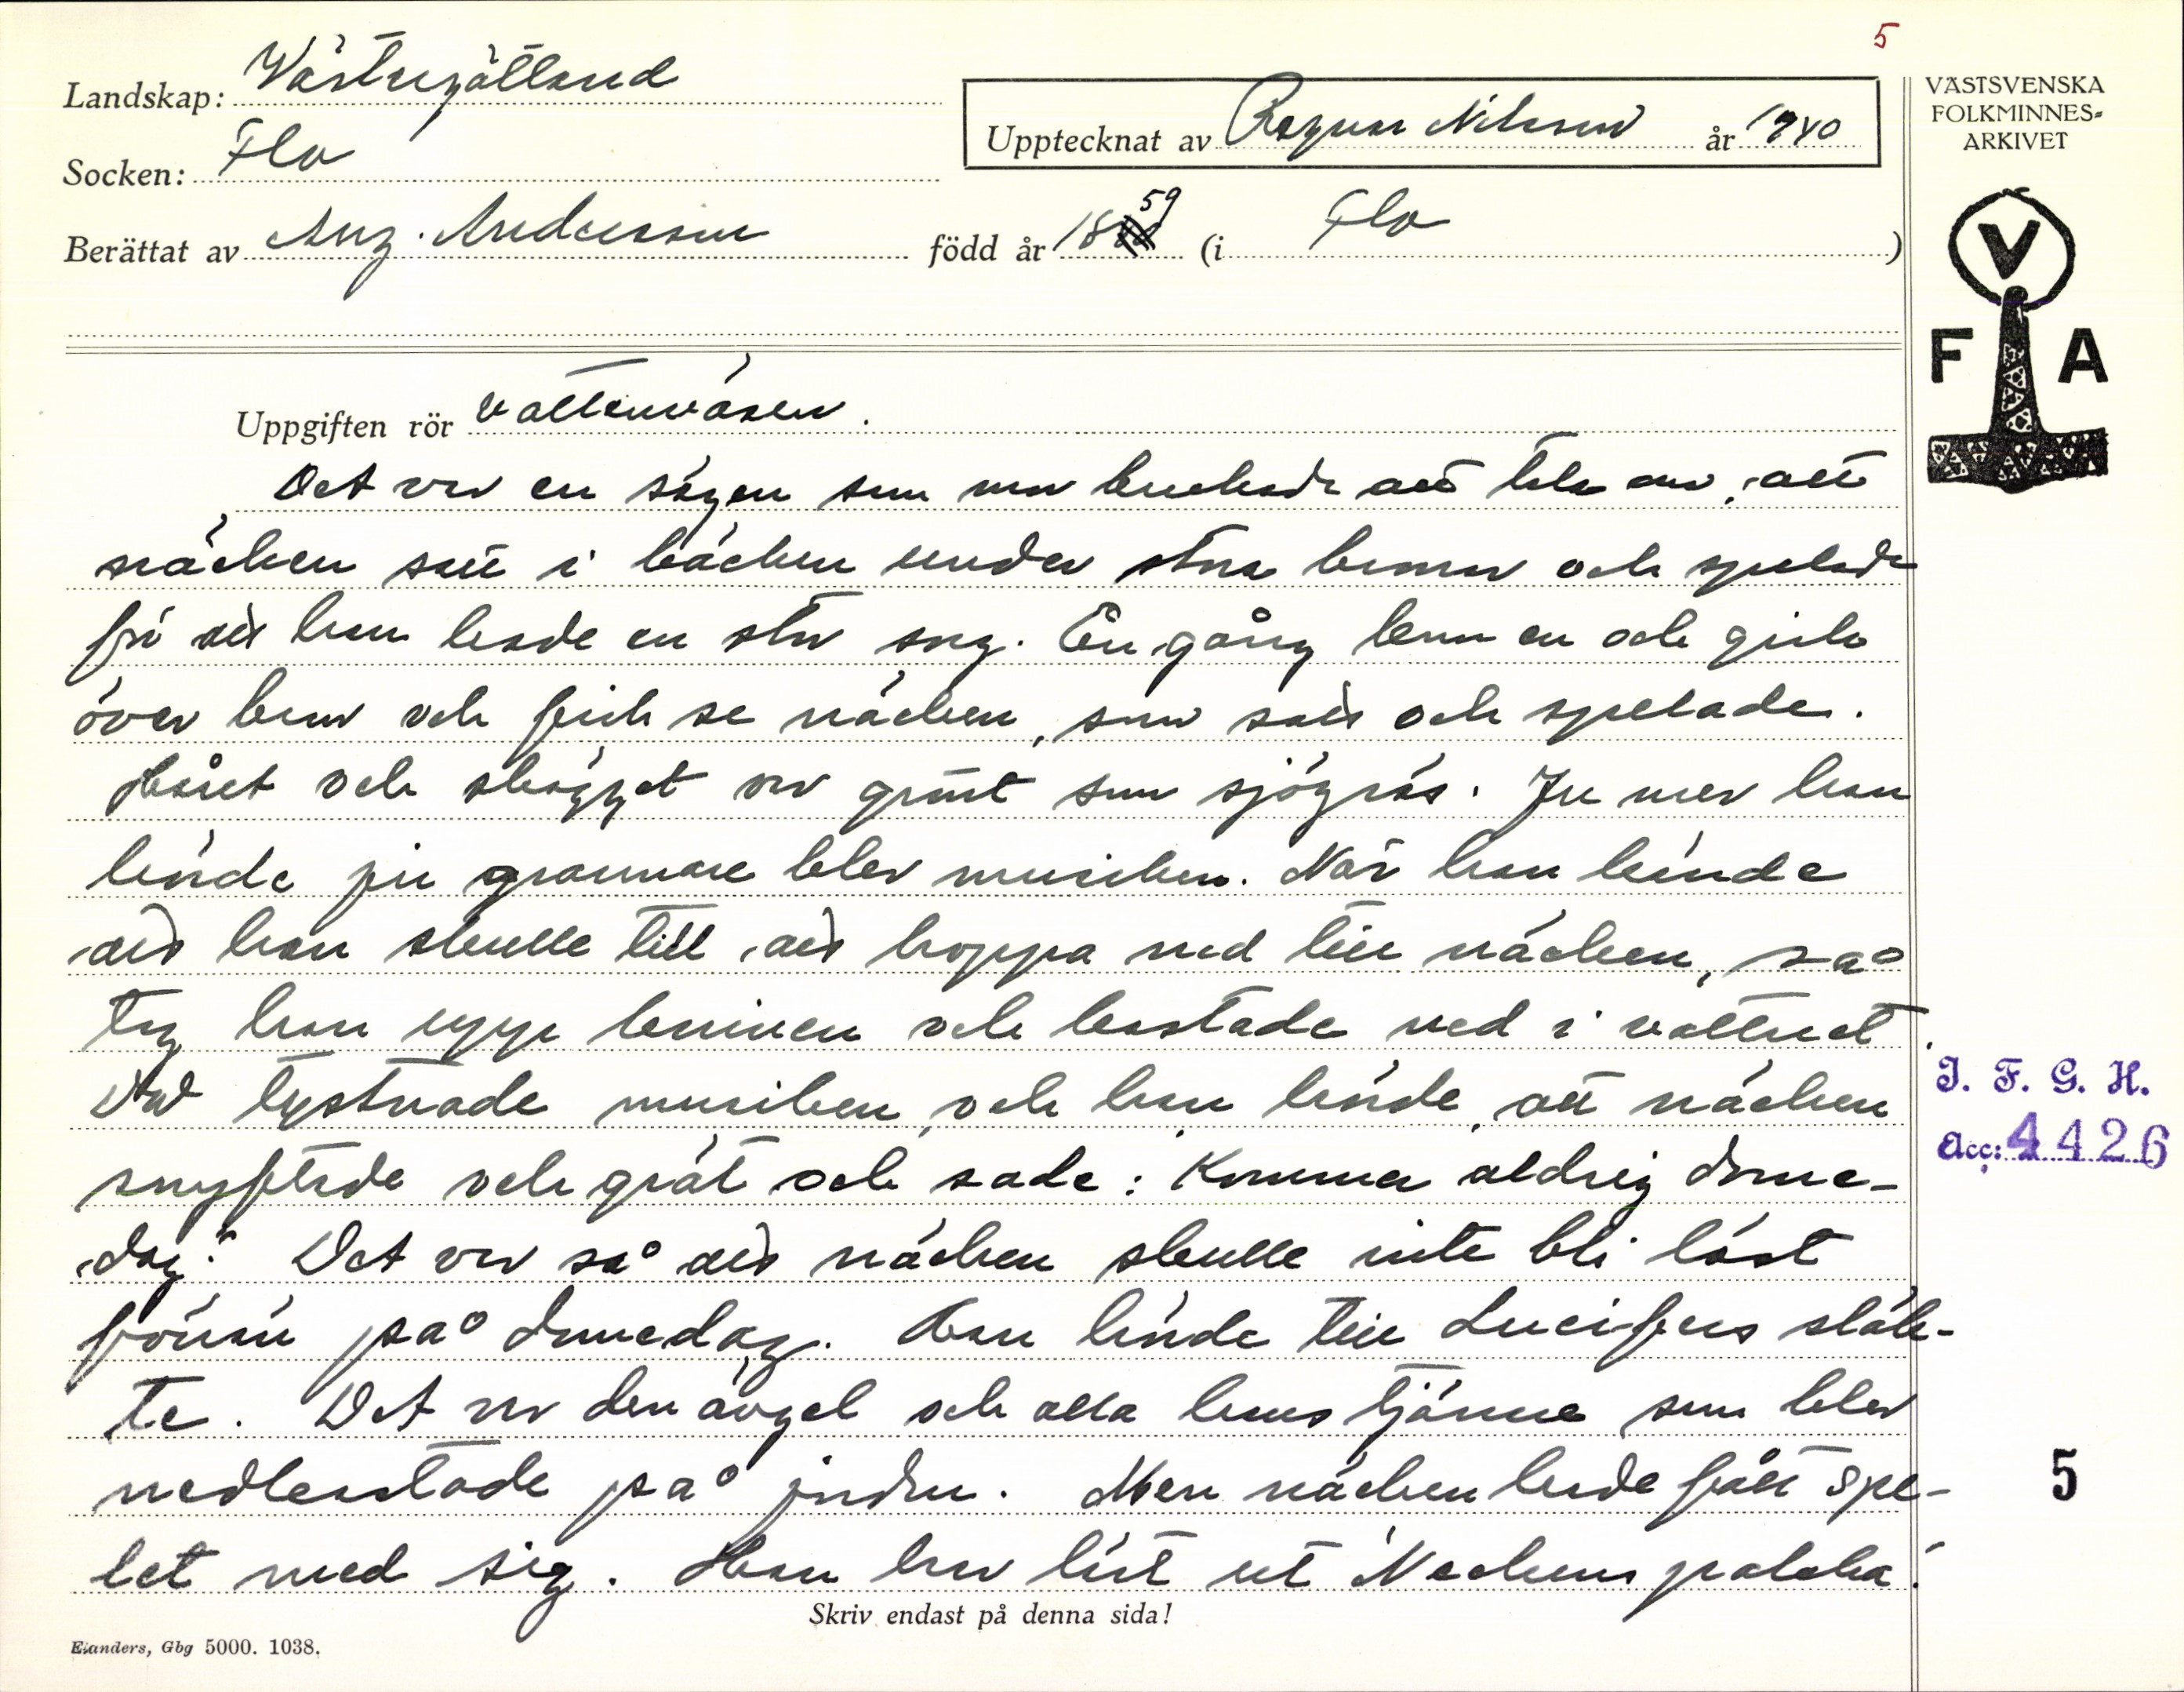 5
Landskap: Västergötland
Socken: Flo
Berättat av Aug. Andersson född år 1859 (i Flo)
Upptecknat av Ragnar Nilsson år 1940
VÄSTSVENSKA
FOLKMINNES-
ARKIVET
V
F A
Uppgiften rör vattenväsen.
Det var en sägen som man brukade att tala om, att
näcken satt i bäcken under stora broar och spelade
för att han hade en stor sorg. En gång kom en och gick
över bron och fick se näcken, som satt och spelade.
Håret och skägget var grönt som sjögräs. Ju mer han
hörde ju grannare blev musiken. När han kände
att han skulle till att hoppa ned till näcken, så
tog han upp kniven och kastade ned i vattnet.
Då tystnade musiken och han hörde, att näcken
snyftade och grät och sade: Kommer aldrig dome-
dag? Det var så att näcken skulle inte bli löst
förrän på domedag. Han hörde till Lucifers släk-
te. Det var den ängel och alla hans tjänare som blev
nedkastade på jorden. Men näcken hade fått spe-
let med sig. Han har lärt ut Neckens polska.
Skriv endast på denna sida!
Elanders, Gbg 5000. 1038.
I. F. G. H.
Acc: 4426
5